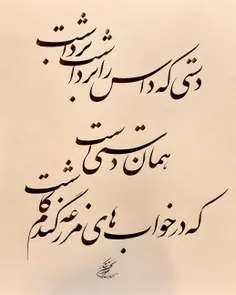 دستی که داس را برداشت برداشت
همان دستی است
که در خواب های مزرعه گندم کاشت